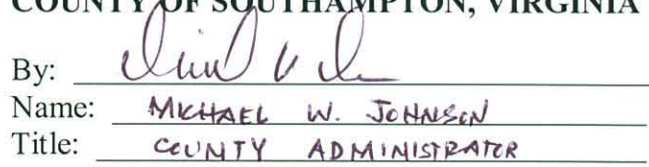 COUNTY OF SOUTHAMPTON, VIRGINIA
By:
Name: MICHAEL W. JOHNSON
Title: COUNTY ADMINISTRATOR